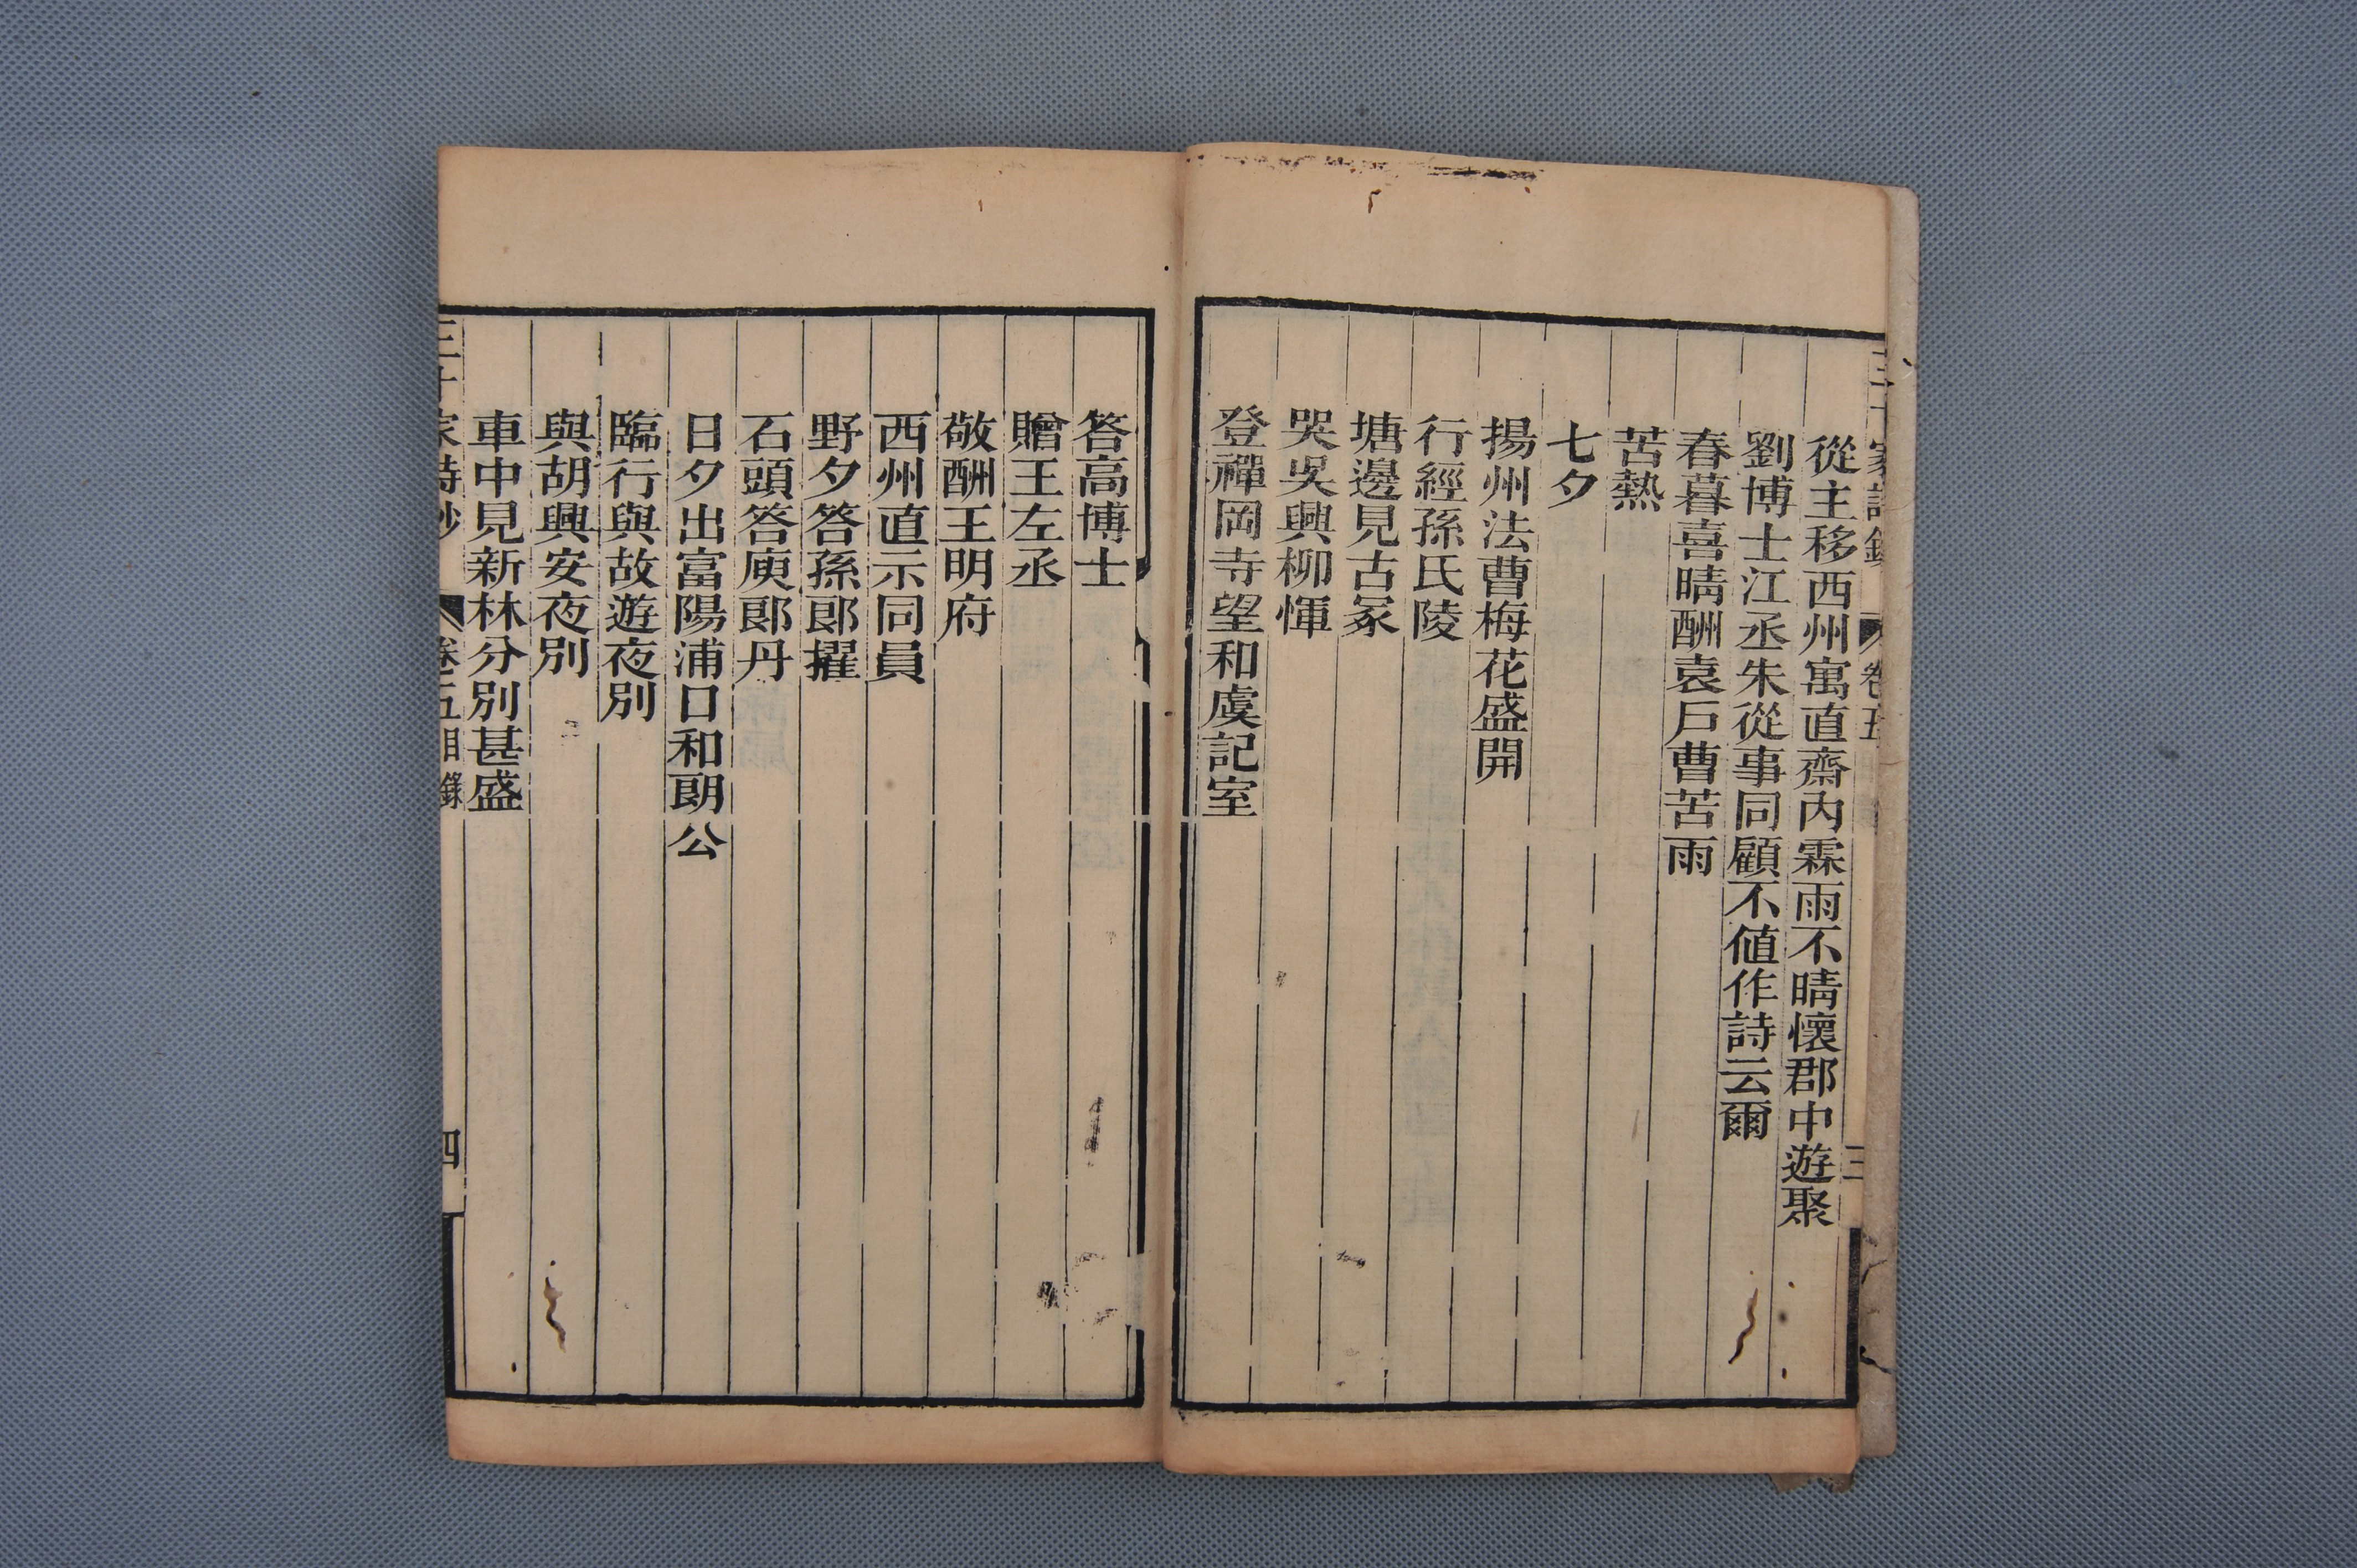 從主移西州寓直齋內霖雨不晴懷郡中遊聚
劉博士江丞朱從事同顧不值作詩云爾
春暮喜晴酬袁戶曹苦雨
苦熱
七夕
揚州法曹梅花盛開
行經孫氏陵
塘邊見古冢
哭吳興柳惲
登禪岡寺望和虞記室
答高博士
贈王左丞
敬酬王明府
西州直示同員
野夕答孫郎擢
石頭答庾郎丹
日夕出富陽浦口和朗公
臨行與故遊夜別
與胡興安夜別
車中見新林分別甚盛
卷五目錄
四